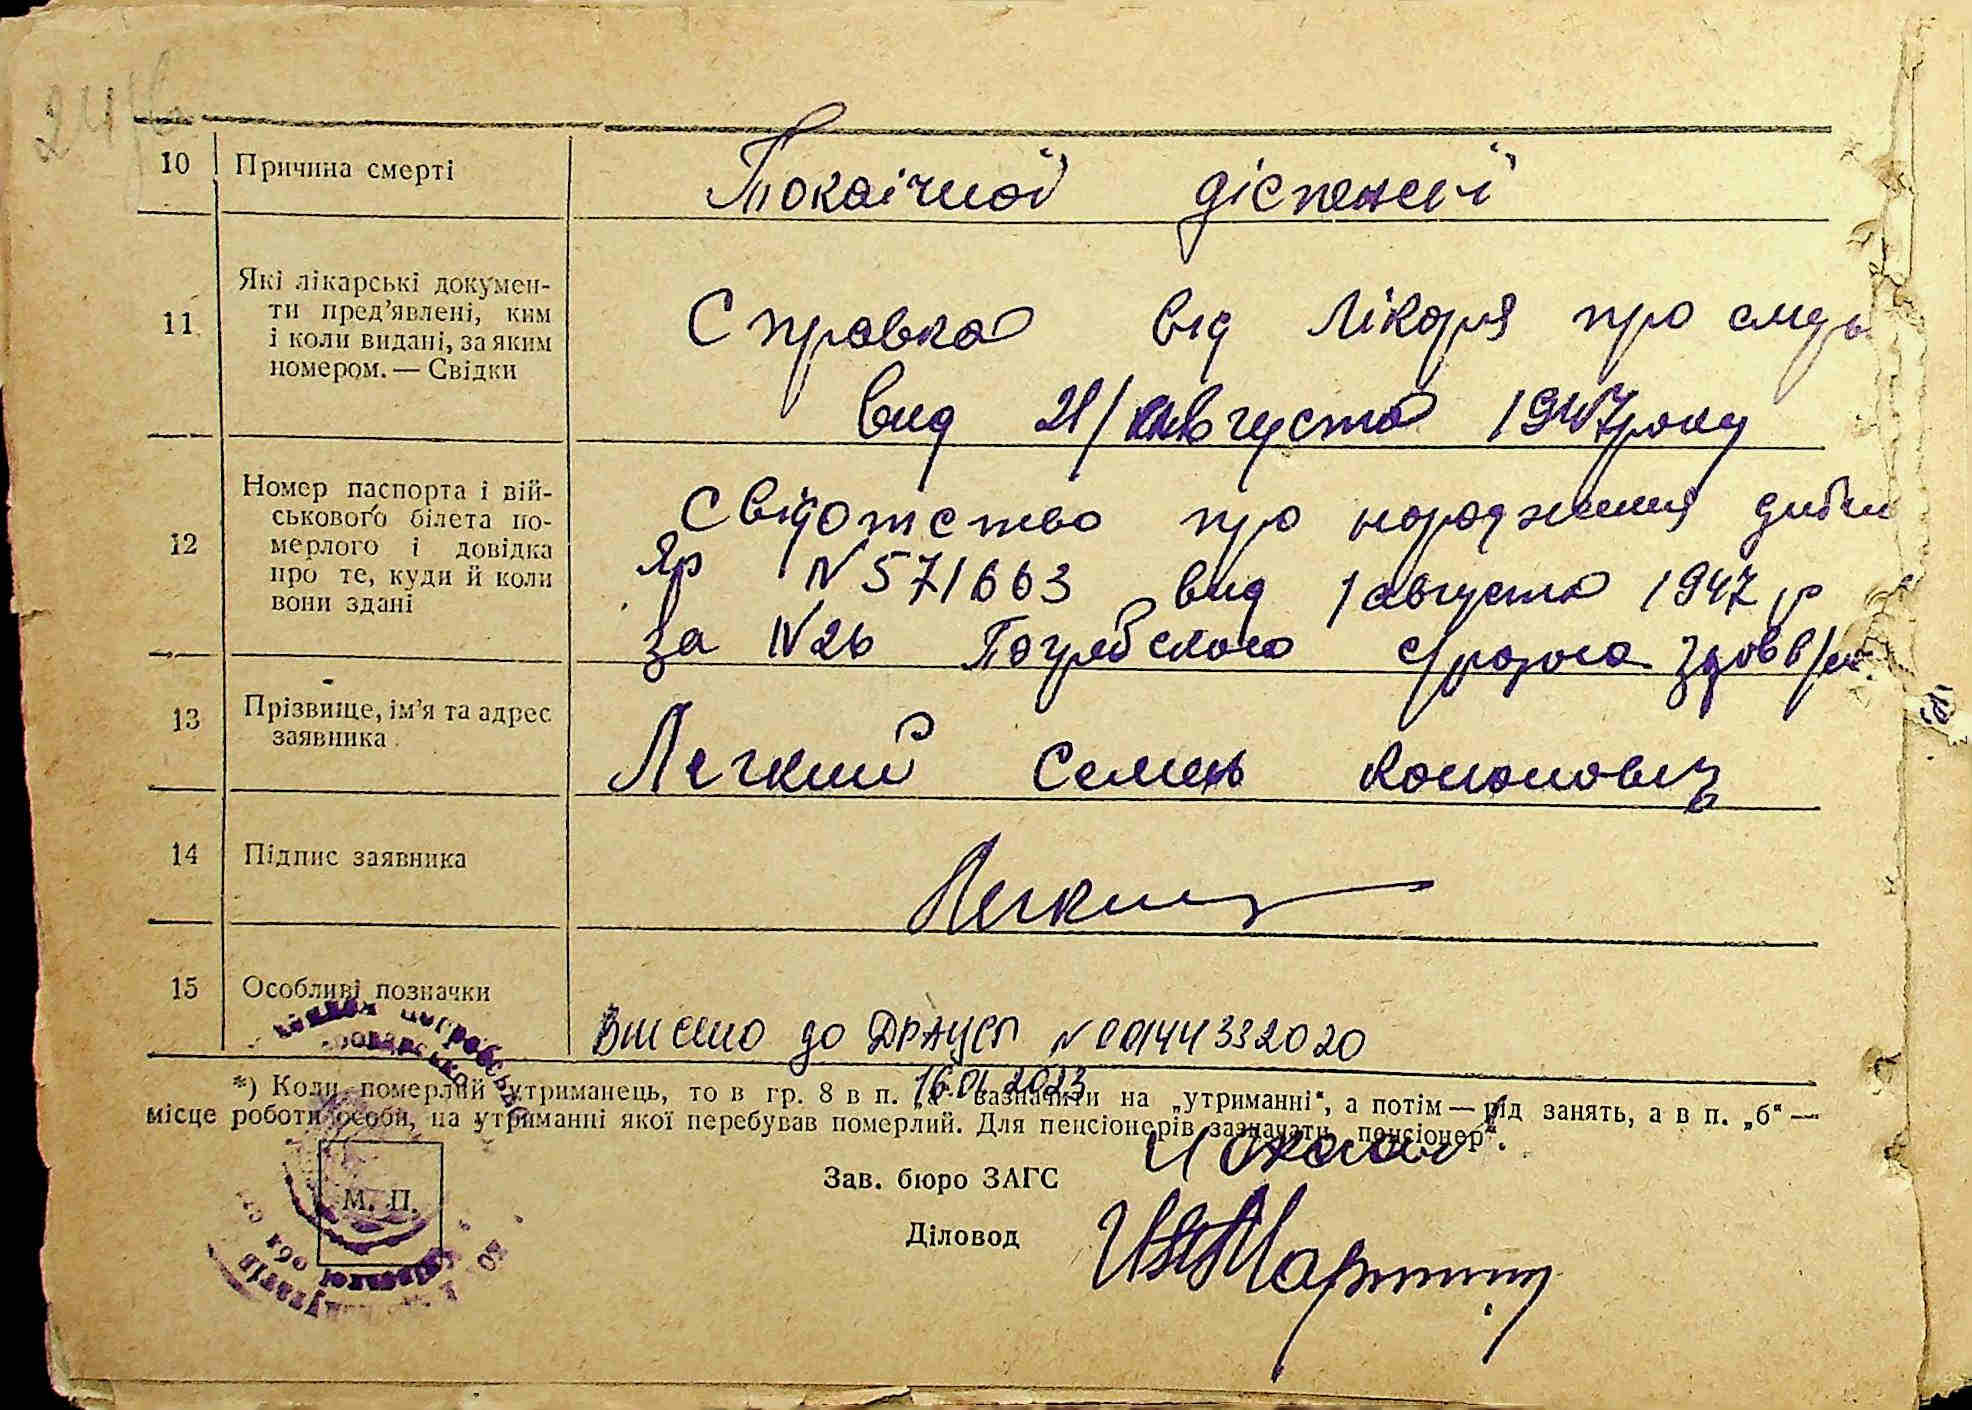 10 Причина смерті
Токсічної діспенсії
11 Які лікарські докумен-
ти пред'явлені, ким
і коли видані, за яким
номером. — Свідки
Справка від лікаря про смерь
вид 21/августа 1947 року
12 Номер паспорта і вій-
ськового білета по-
мерлого і довідка
про те, куди й коли
вони здані
Свідотство про народження
Яр N 571663 вид 1 августа 1947 р
за N 26 Погребского
13 Прізвище, ім'я та адрес
заявника
Легкий Семен Кононович
14 Підпис заявника
Легкий
15 Особливі позначки
Внесено до ДРАЦСГ N 00144332020
16.01.2023
*) Коли померлий утриманець, то в гр. 8 в п. „а“ зазначити на „утриманні“, а потім — рід занять, а в п. „б“ —
місце роботи особи, на утриманні якої перебував померлий. Для пенсіонерів зазначати „пенсіонер“.
Зав. бюро ЗАГС
Діловод
М. П.